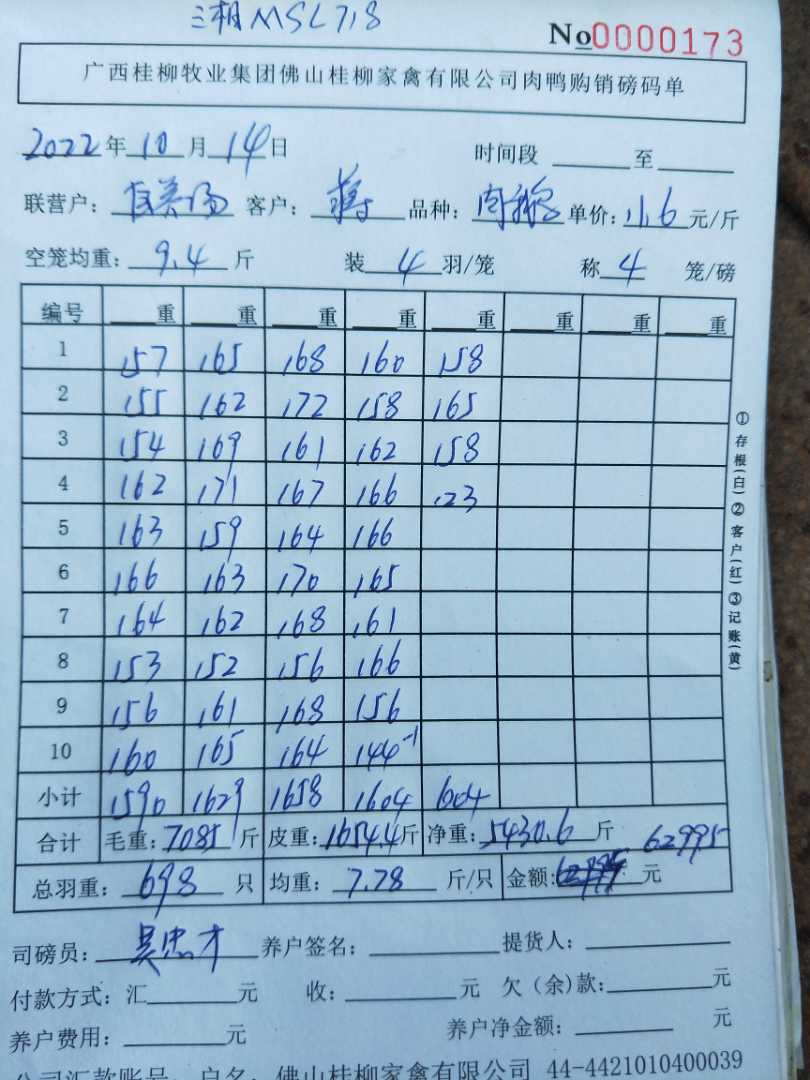 三湘MSL718
No0000173
广西桂柳牧业集团佛山桂柳家禽有限公司肉鸭购销磅码单
2022年10月14日 时间段 至
联营户: 客户:蒋 品种:肉 单价:11.6元/斤
空笼均重:9.4斤 装4羽/笼 称4笼/磅
编号 重 重 重 重 重 重 重 重
1 157 165 168 160 158
2 155 162 172 158 165
3 154 169 161 162 158
4 162 171 167 166 123
5 163 159 164 166
6 166 163 170 165
7 164 162 168 161
8 153 152 156 166
9 156 161 168 156
10 160 165 164 144-1
小计 1590 1629 1658 1604 604
合计 毛重:7085斤 皮重:1654.4斤 净重:5430.6斤 62995
总羽重:698只 均重:7.78斤/只 金额:元
司磅员:吴忠才 养户签名: 提货人:
付款方式:汇 元 收: 元 欠(余)款: 元
养户费用: 元 养户净金额: 元
公司汇款账号: 户名:佛山桂柳家禽有限公司 44-4421010400039
①存根(白)②客户(红)③记账(黄)